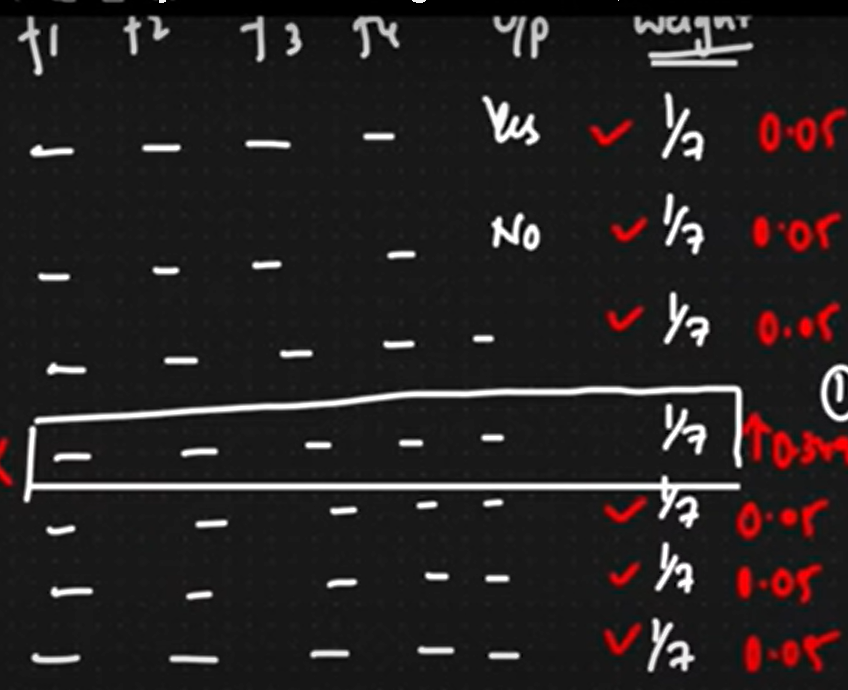 f1 f2 f3 f4 O/P Weight
— — — — Yes ✓ 1/7 0.05
— — — — No ✓ 1/7 0.05
— — — — — ✓ 1/7 0.05
— — — — — 1/7 ↑
— — — — — ✓ 1/7 0.05
— — — — — ✓ 1/7 0.05
— — — — — ✓ 1/7 0.05
①